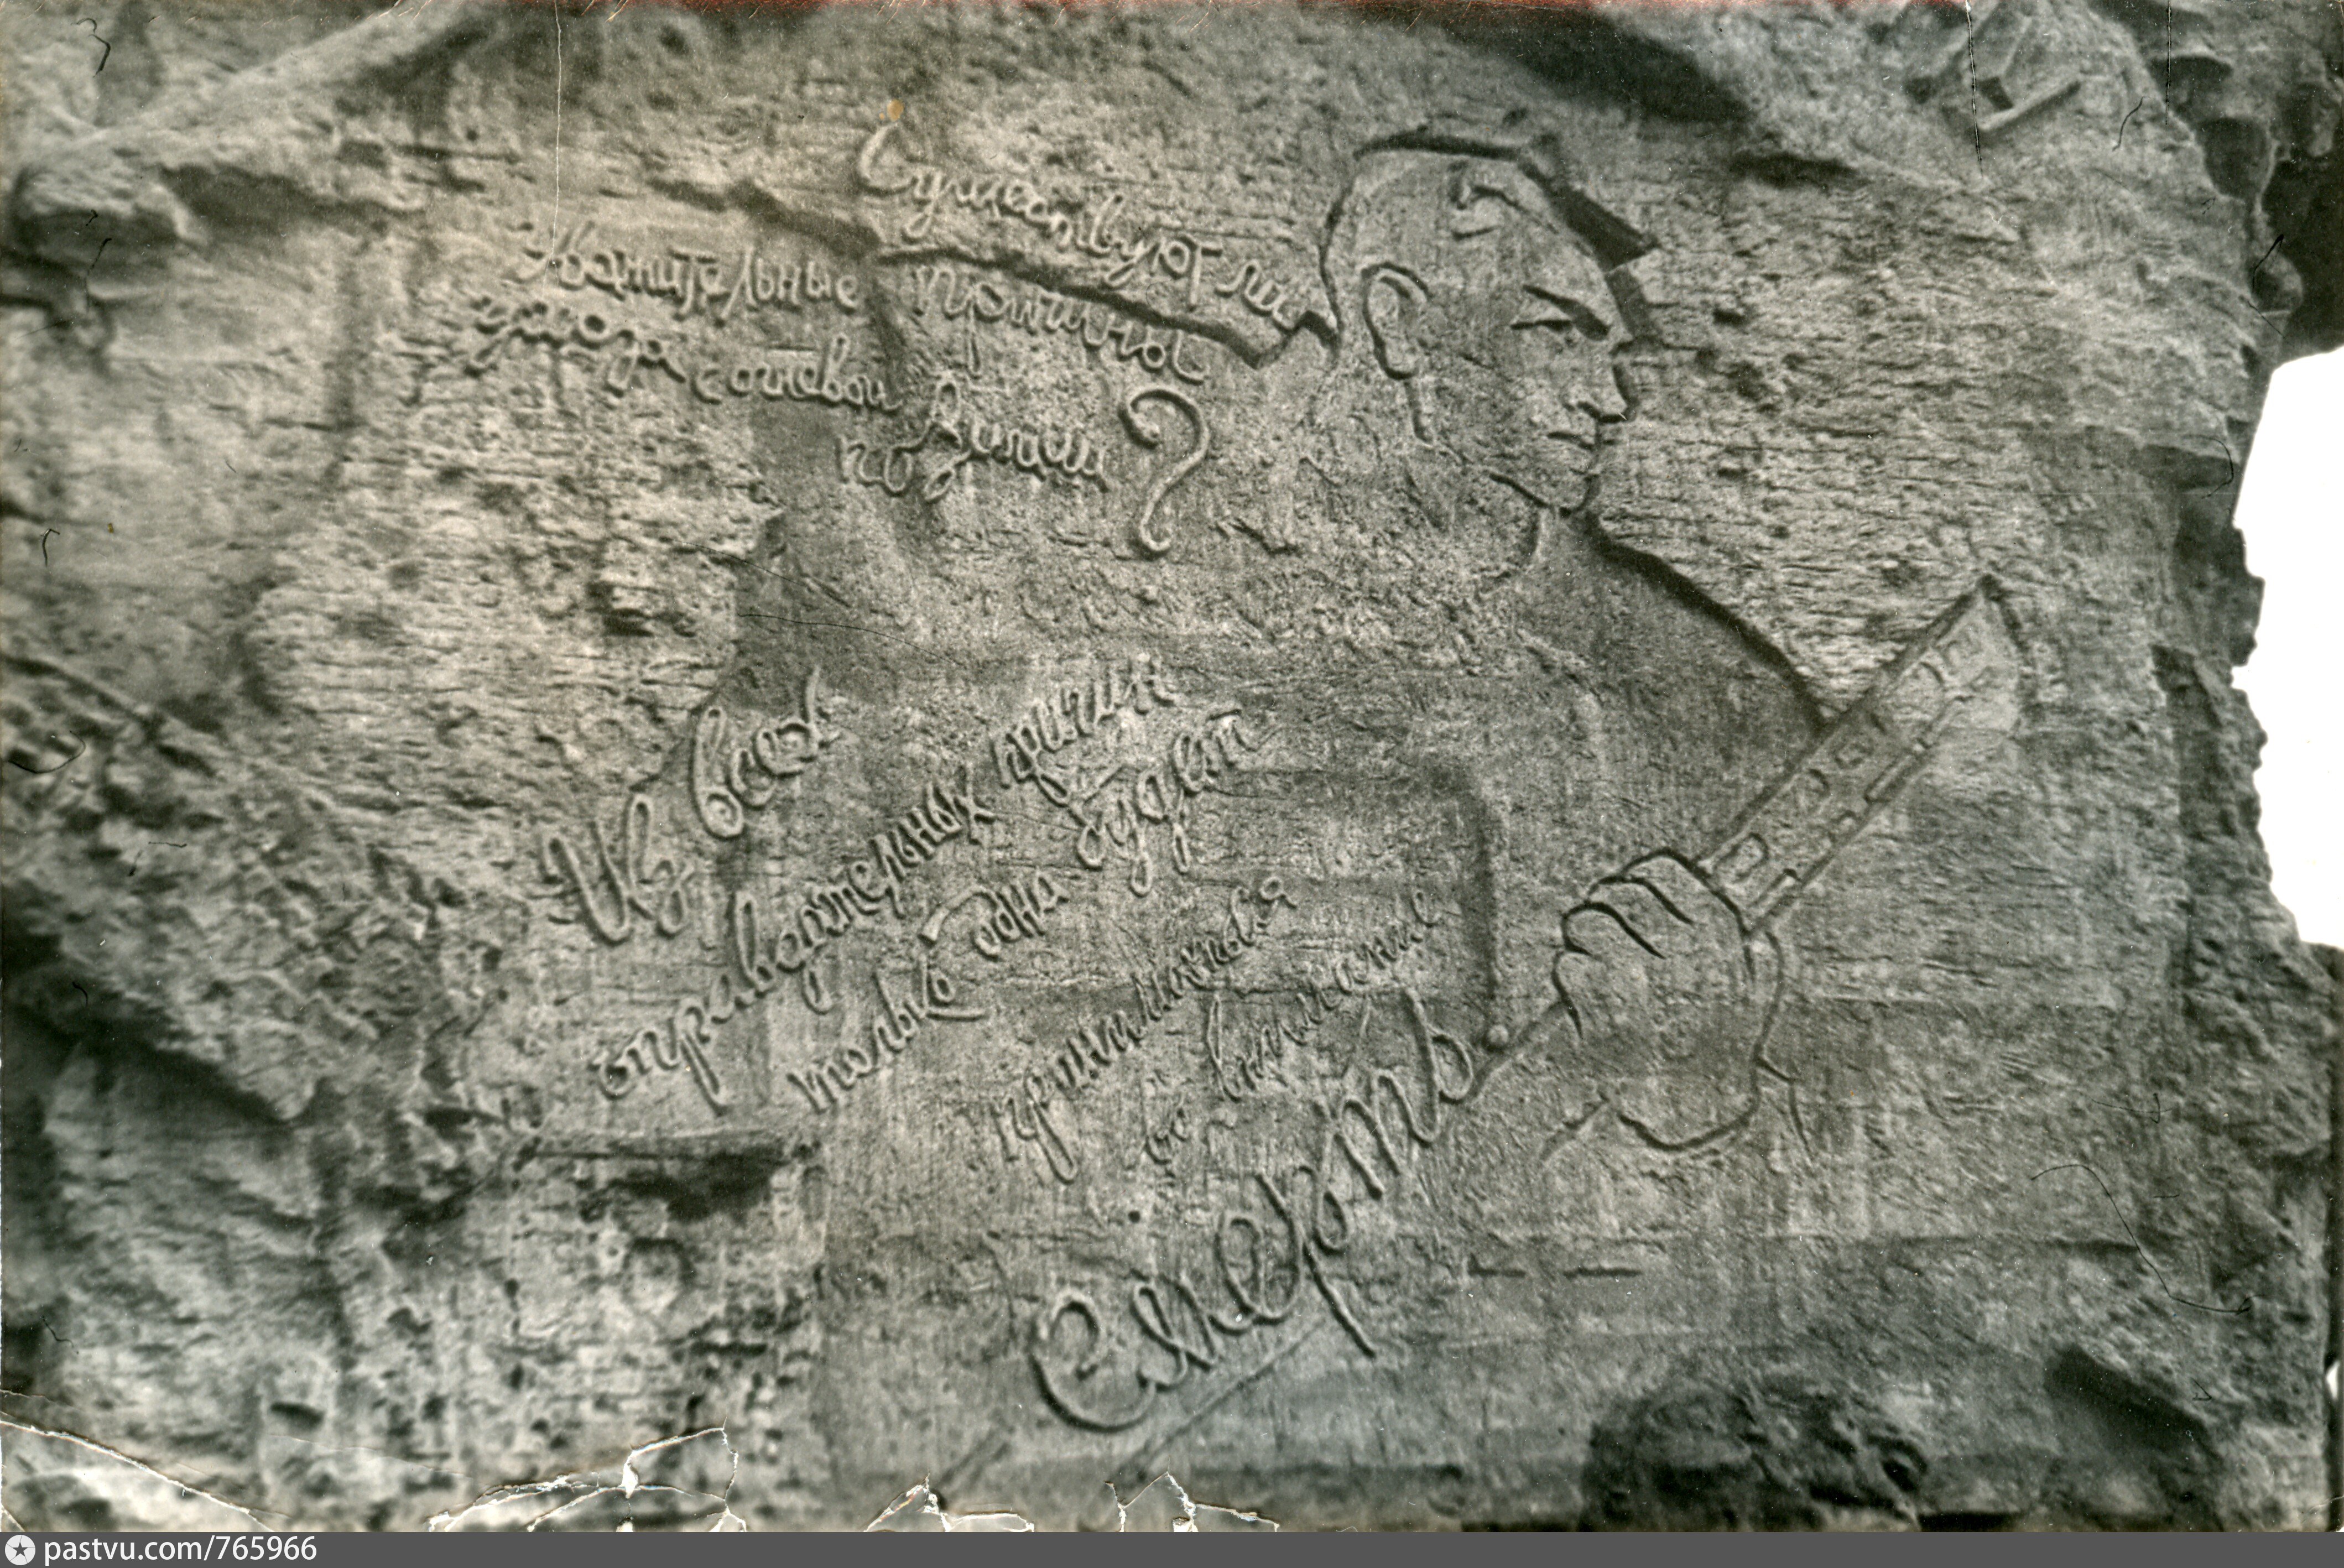 Существуют ли
Уважительные причины
ухода с огневой
позиции?
Из всех
оправдательных причин
только одна будет
приниматься
во внимание
Смерть.
pastvu.com/765966